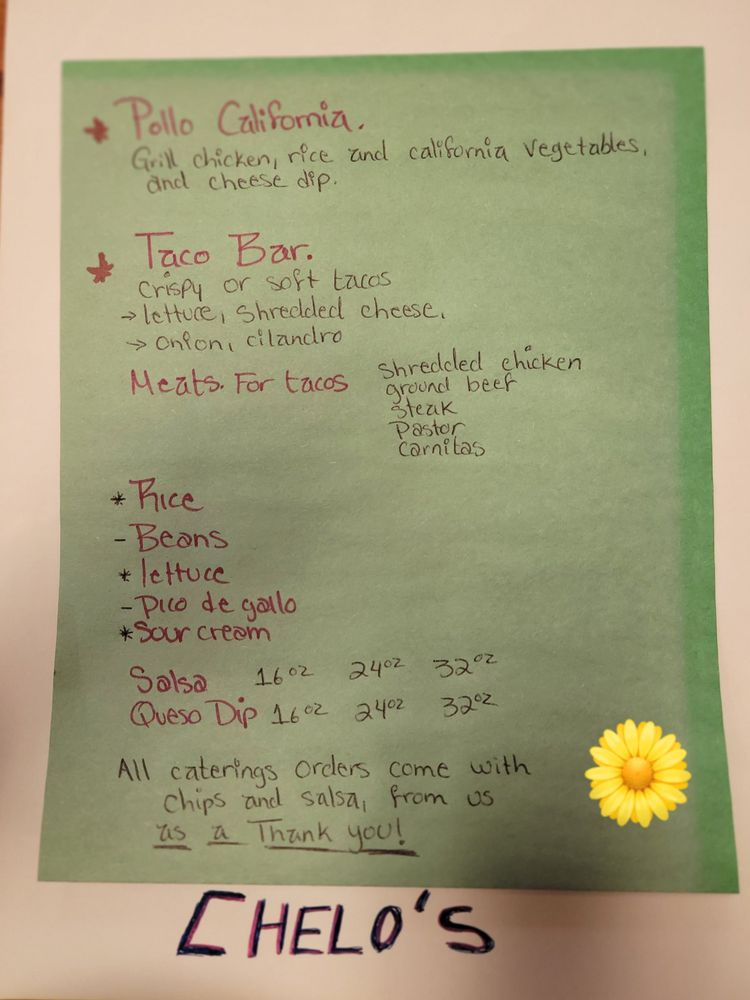 * Pollo California.
Grill chicken, rice and california vegetables,
and cheese dip.
* Taco Bar.
crispy or soft tacos
→ lettuce, shredded cheese,
→ onion, cilandro
Meats. For tacos shredded chicken
ground beef
steak
Pastor
Carnitas
* Rice
- Beans
* lettuce
- pico de gallo
* Sour cream
Salsa 16oz 24oz 32oz
Queso Dip 16oz 24oz 32oz
All caterings orders come with
chips and salsa, from us
as a Thank you!
CHELO'S